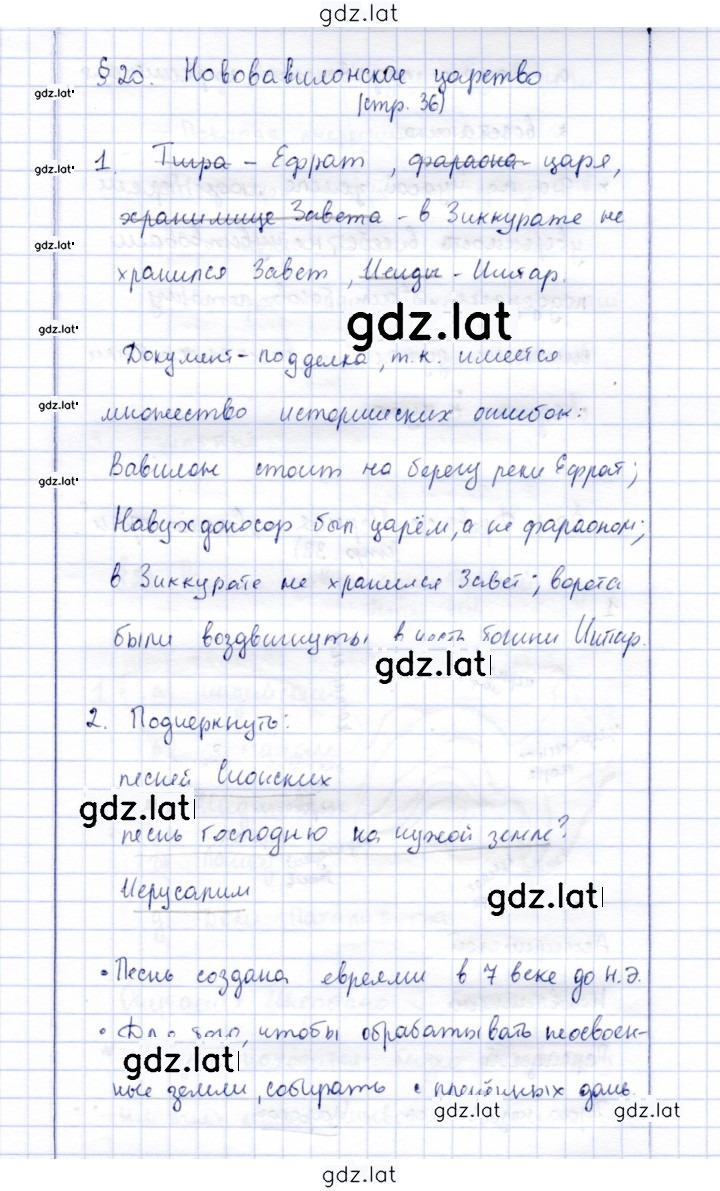 gdz.lat
§ 20. Нововавилонское царство
gdz.lat
(стр. 36)
1. Тигра - Ефрат, фараона - царя,
gdz.lat
хранилище Завета - в Зиккурате не
gdz.lat
хранился Завет, Исиды - Иштар.
gdz.lat
gdz.lat
Документ - подделка, т.к. имеется
множество исторических ошибок:
gdz.lat
Вавилон стоит на берегу реки Ефрат;
gdz.lat
Навуходоносор был царём, а не фараоном;
в Зиккурате не хранился Завет; ворота
были воздвигнуты в честь богини Иштар.
gdz.lat
2. Подчеркнуть:
песней Сионских
gdz.lat
песнь господню на чужой земле?
Иерусалим
gdz.lat
• Песнь создана евреями в 7 веке до н.э.
• Для того, чтобы обрабатывать неосвоен-
gdz.lat
ные земли, собирать с пленных дань.
gdz.lat gdz.lat
gdz.lat